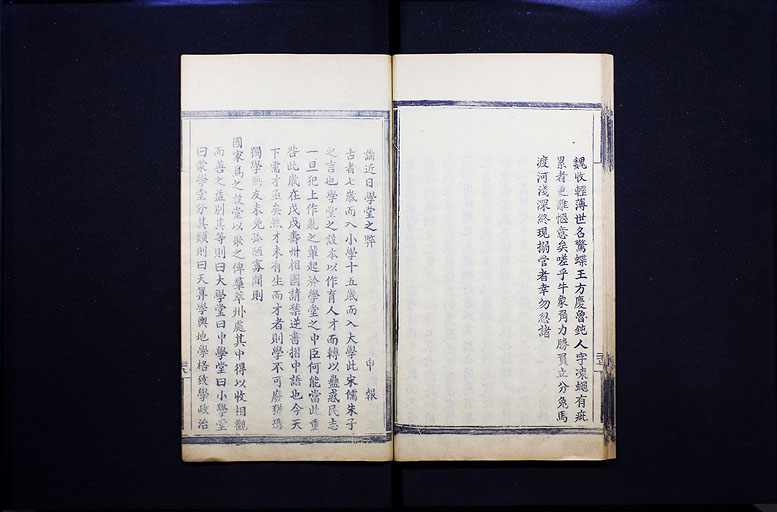 魏收輕薄世名驚蝶王方慶魯鈍人字凍蠅有疵
累者更難愜意矣嗟乎牛象角力勝負立分兔馬
渡河淺深終現搦管者幸勿忽諸
論近日學堂之弊 申報
古者七歲而入小學十五歲而入大學此宋儒朱子
之言也學堂之設本以作育人才而轉以蠱惑民志
一旦犯上作亂之輩起於學堂之中臣何能當此重
咎此歲在戊戌壽州相國請禁逆書摺中語也今天
下需才亟矣然才未有生而才者則學不可廢獨
獨學無友未免孤陋寡聞則
國家為之設堂以聚之俾羣萃州處其中得以收相觀
而善之益別其等則曰大學堂曰中學堂曰小學堂
曰蒙學堂分其類則曰天算學輿地學格致學政治